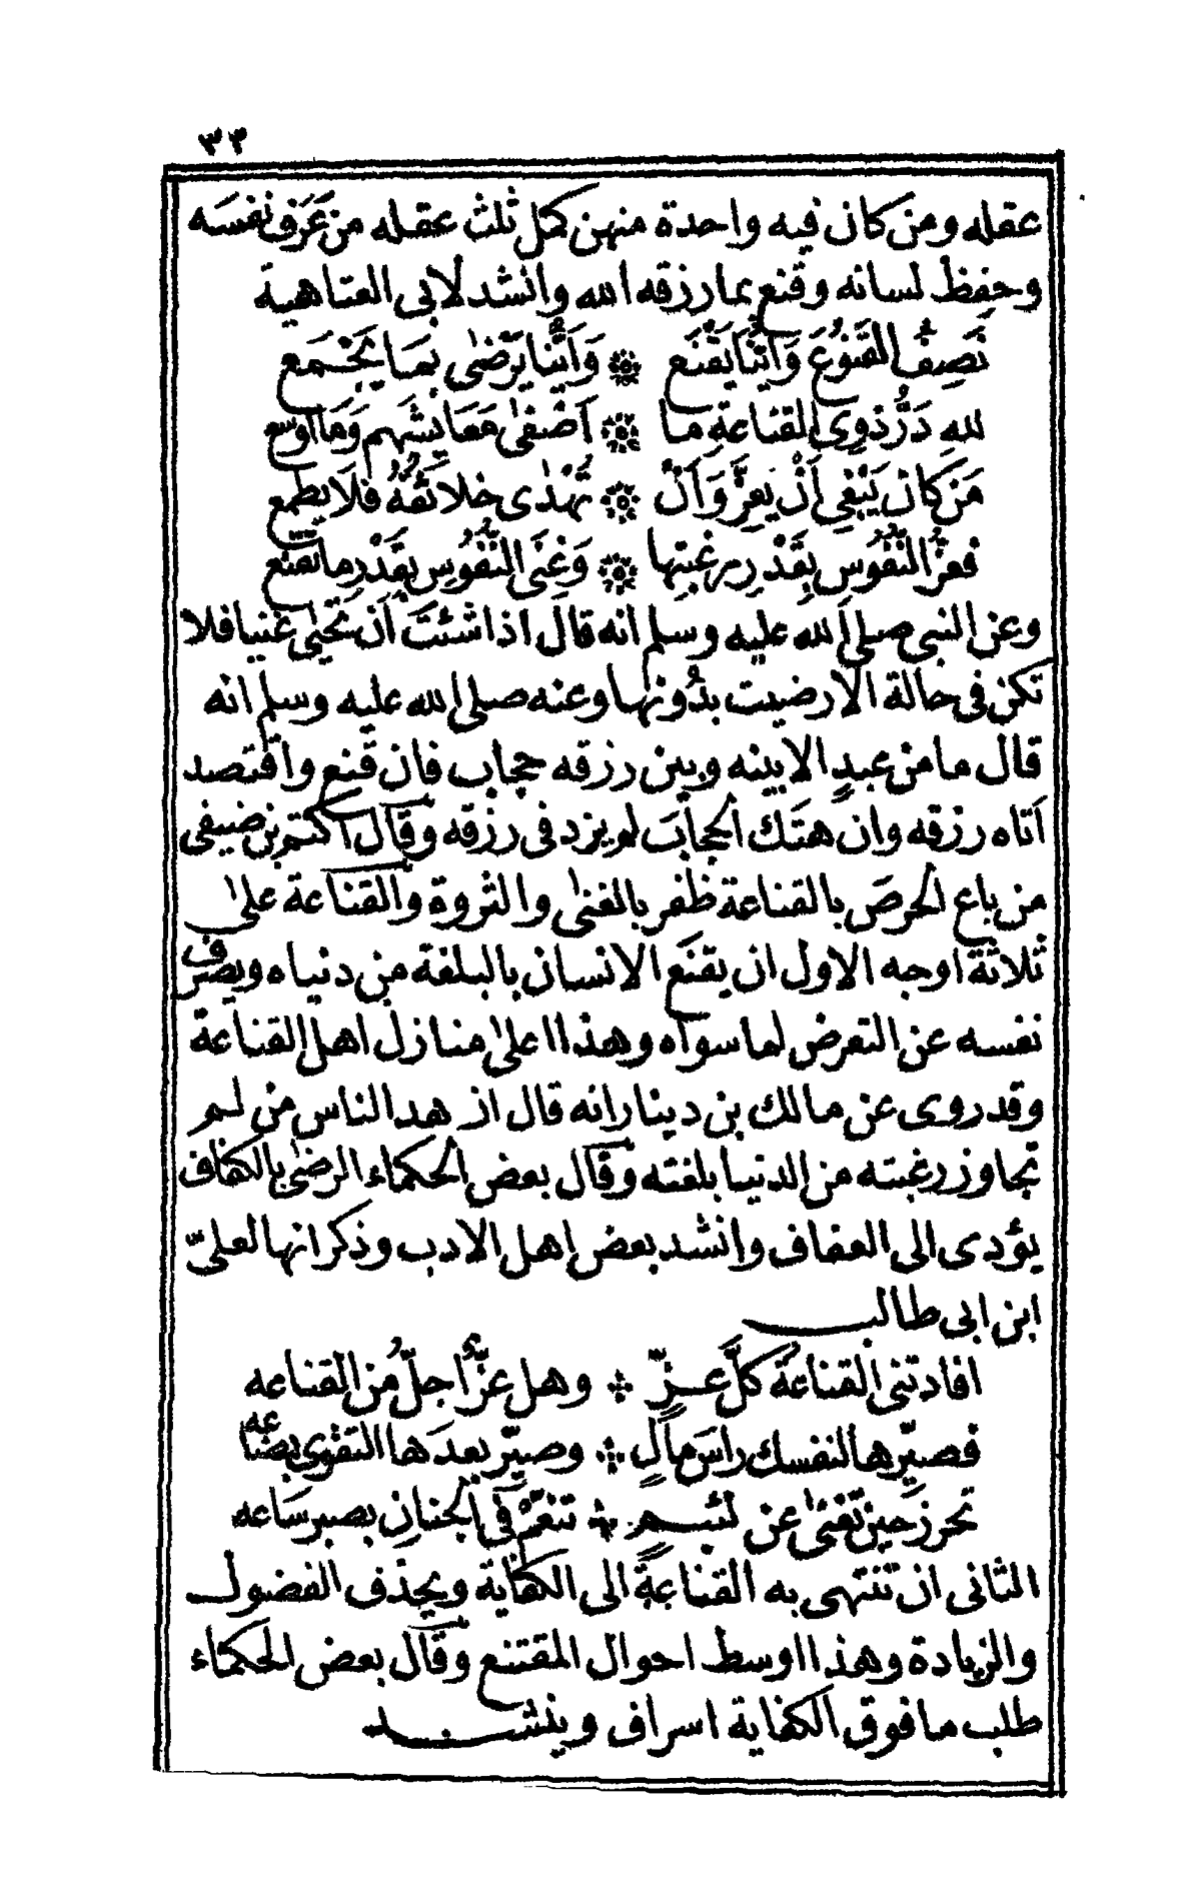 ٣٣
عقله ومن كان فيه واحدة منهن كمل ثلث عقله من عَرَف نفسَه
وحفِظ لسانه وقنع بما رزقه الله وانشد لابى العتاهية
نَصِفُ القَنُوعَ وَاَيُّنَا يَقْنَع ۞ وَاَيُّنَا يَرْضٰى بِمَا يَجْمَع
للهِ دَرُّ ذوِى القنَاعةِ ما ۞ اَصْفٰى مَعَايِشَهم وَمَا اوسع
مَن كانَ يَبْغِى اَنْ يَعِزَّ وَاَنْ ۞ تُهْدٰى خلائقُهُ فَلَا يطمع
فقرُ النُّفُوسِ بِقَدْرِ رغبتِها ۞ وَغِنَى النُّفُوسِ بِقَدْرِ ما تقنع
وعن النبى صلى الله عليه وسلم انه قال اذا شئتَ اَن تحيٰى غنيا فلا
تكن فى حالة الا رضيت بدُونها وعنه صلى الله عليه وسلم انه
قال ما من عبدٍ الا بينه وبين رزقه حجاب فان قَنع واقتصد
اَتاه رزقه وان هتَك الحجابَ لم يزد فى رزقه وقال اكثم بن ضيفى
من باع الحرصَ بالقناعة ظفر بالغنٰى والثروة والقناعة علىٰ
ثلاثة اوجه الاول ان يقنَع الانسان بالبلغة من دنياه ويصرف
نفسه عن التعرض لما سواه وهذا اعلىٰ منازل اهل القناعة
وقد روى عن مالك بن دينار انه قال ازهد الناس من لم
تجاوز رغبته من الدنيا بلغته وقال بعض الحكماء الرضىٰ بالكفاف
يؤدى الى العفاف وانشد بعض اهل الادب وذكر انها لعلىّ
ابن ابى طالب
افادتنى القناعةُ كلَّ عـزٍّ ⁘ وهل عزٌّ اجلُّ من القناعه
فصيِّرها لنفسك راسَ مالٍ ⁘ وصيِّر بعدَها التقوى بضاعه
تحرز حين تغنىٰ عن لئيـمٍ ⁘ تنعَّمْ فى الجنانِ بصبر سَاعه
الثانى ان تنتهى به القناعةُ الى الكفاية ويحذف الفضول
والزيادة وهذا اوسط احوال المقتنع وقال بعض الحكماء
طلب ما فوق الكفاية اسراف وينشـد